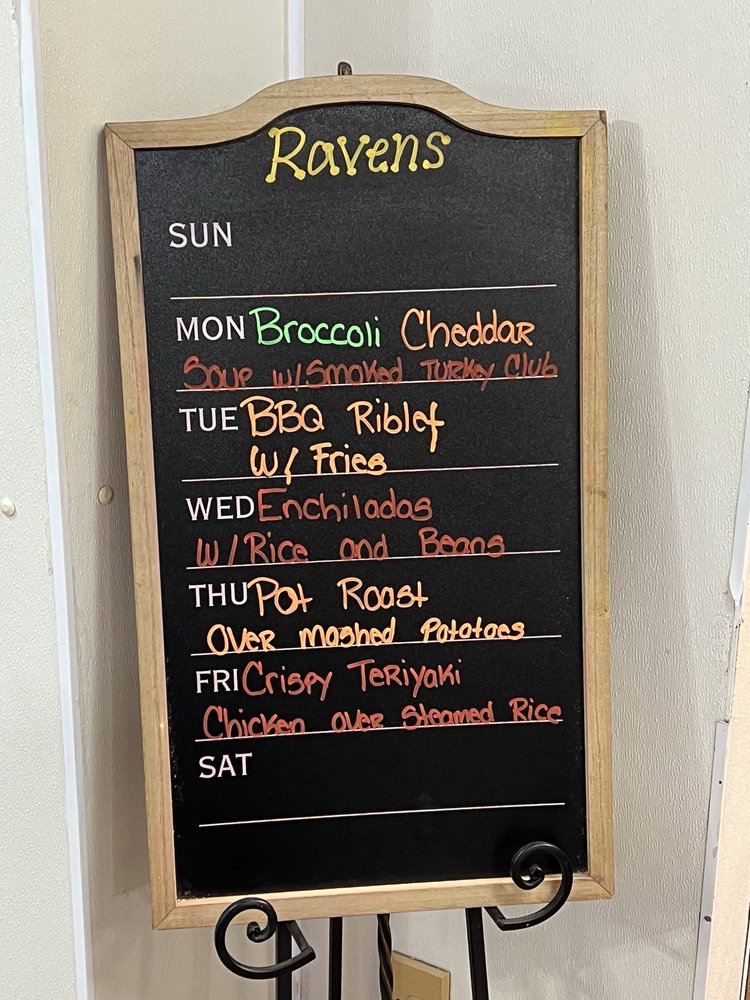 Ravens
SUN
MON Broccoli Cheddar
Soup w/Smoked Turkey Club
TUE BBQ Riblet
w/ Fries
WED Enchiladas
w/Rice and Beans
THU Pot Roast
Over mashed Potatoes
FRI Crispy Teriyaki
Chicken over Steamed Rice
SAT